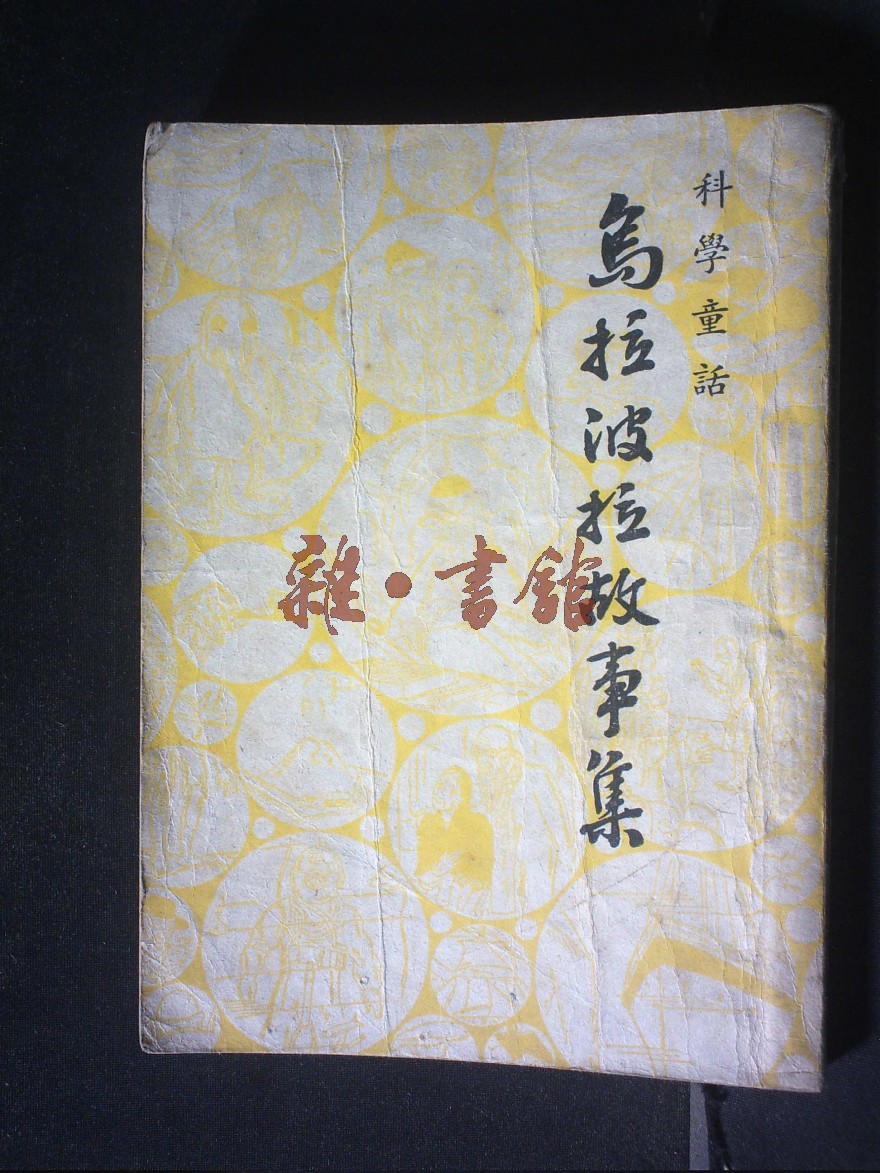 科學童話
烏拉波拉故事集
雜·書館